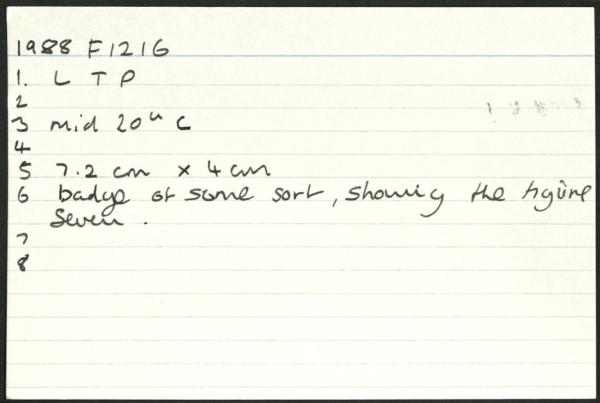 1988 F1216
1. L T P
2
3 mid 20th C
4
5 7.2 cm x 4 cm
6 badge of some sort, showing the figure
seven.
7
8